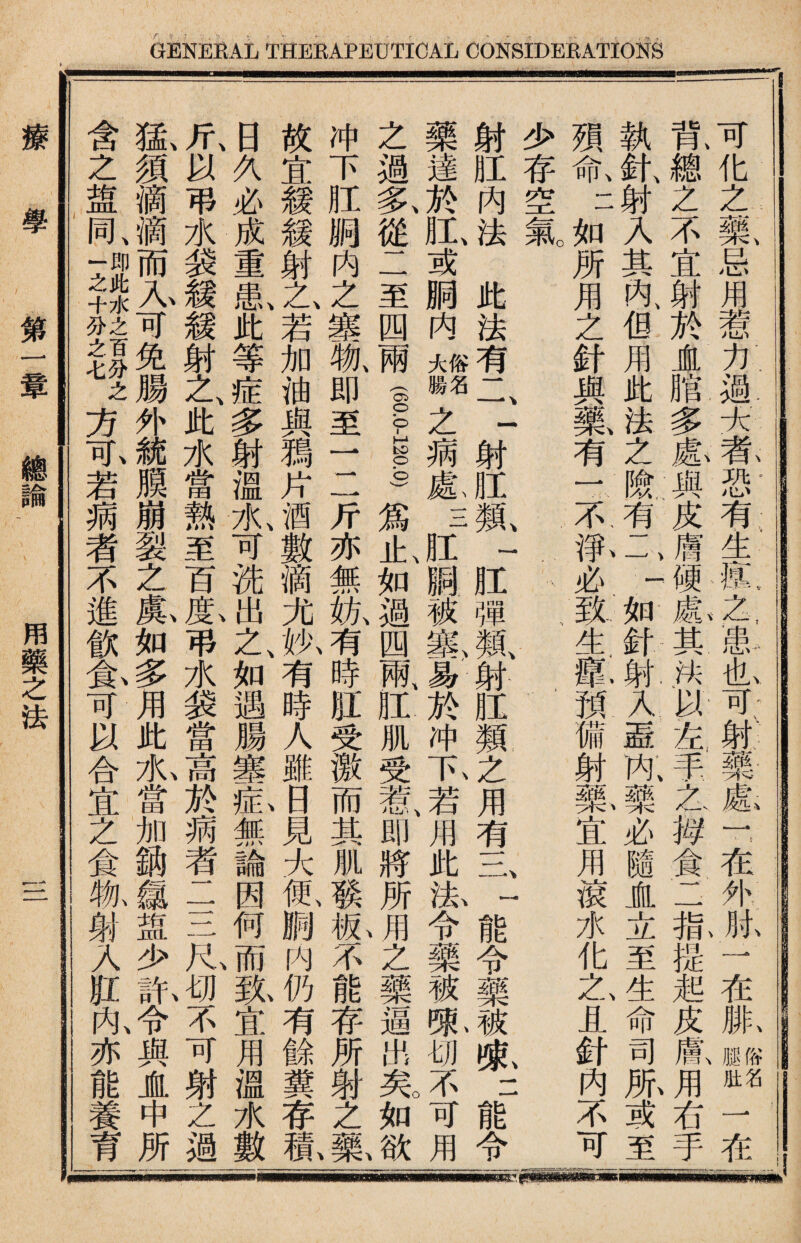 GENERAL THERAPEUTICAL CONSIDERATIONS
可化之藥、忌用惹力過大者、恐有生㾮之患也、可射藥處、一在外肘、一在腓、俗名腿肚一在
背、總之不宜射於血脜多處、與皮膚硬處、其法以左手之拇食二指、提起皮膚、用右手
執針、射入其內、但用此法之險有二、一如針射入衁內、藥必隨血立至生命司所、或至
殞命、二如所用之針與藥、有一不淨、必致生㾮、預備射藥、宜用滾水化之、且針內不可
少存空氣。
射肛內法 此法有二、一射肛類、一肛彈類、射肛類之用有三、一能令藥被㖼、二能令
藥達於肛、或胴內俗名大腸之病處、三肛胴被塞、易於冲下、若用此法、令藥被㖼、切不可用
之過多、從二至四兩(60.0-120.0)爲止、如過四兩、肛肌受惹、即將所用之藥逼出矣。如欲
冲下肛胴內之塞物、即至一二斤亦無妨、有時肛受激而其肌發板、不能存所射之藥、
故宜緩緩射之、若加油與鴉片酒數滴尤妙、有時人雖日見大便、胴內仍有餘糞存積、
日久必成重患、此等症多射溫水、可洗出之、如遇腸塞症、無論因何而致、宜用溫水數
斤、以弔水袋緩緩射之、此水當熱至百度、弔水袋當高於病者二三尺、切不可射之過
猛、須滴滴而入、可免腸外統膜崩裂之虞、如多用此水、當加鈉䋚盐少許、令與血中所
含之盐同、即此水之百分之一之十分之七方可、若病者不進飲食、可以合宜之食物、射入肛內、亦能養育
療學 第一章 總論 用藥之法 三